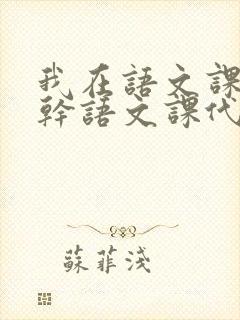 我在語文課
幹語文課代
蘇菲淺